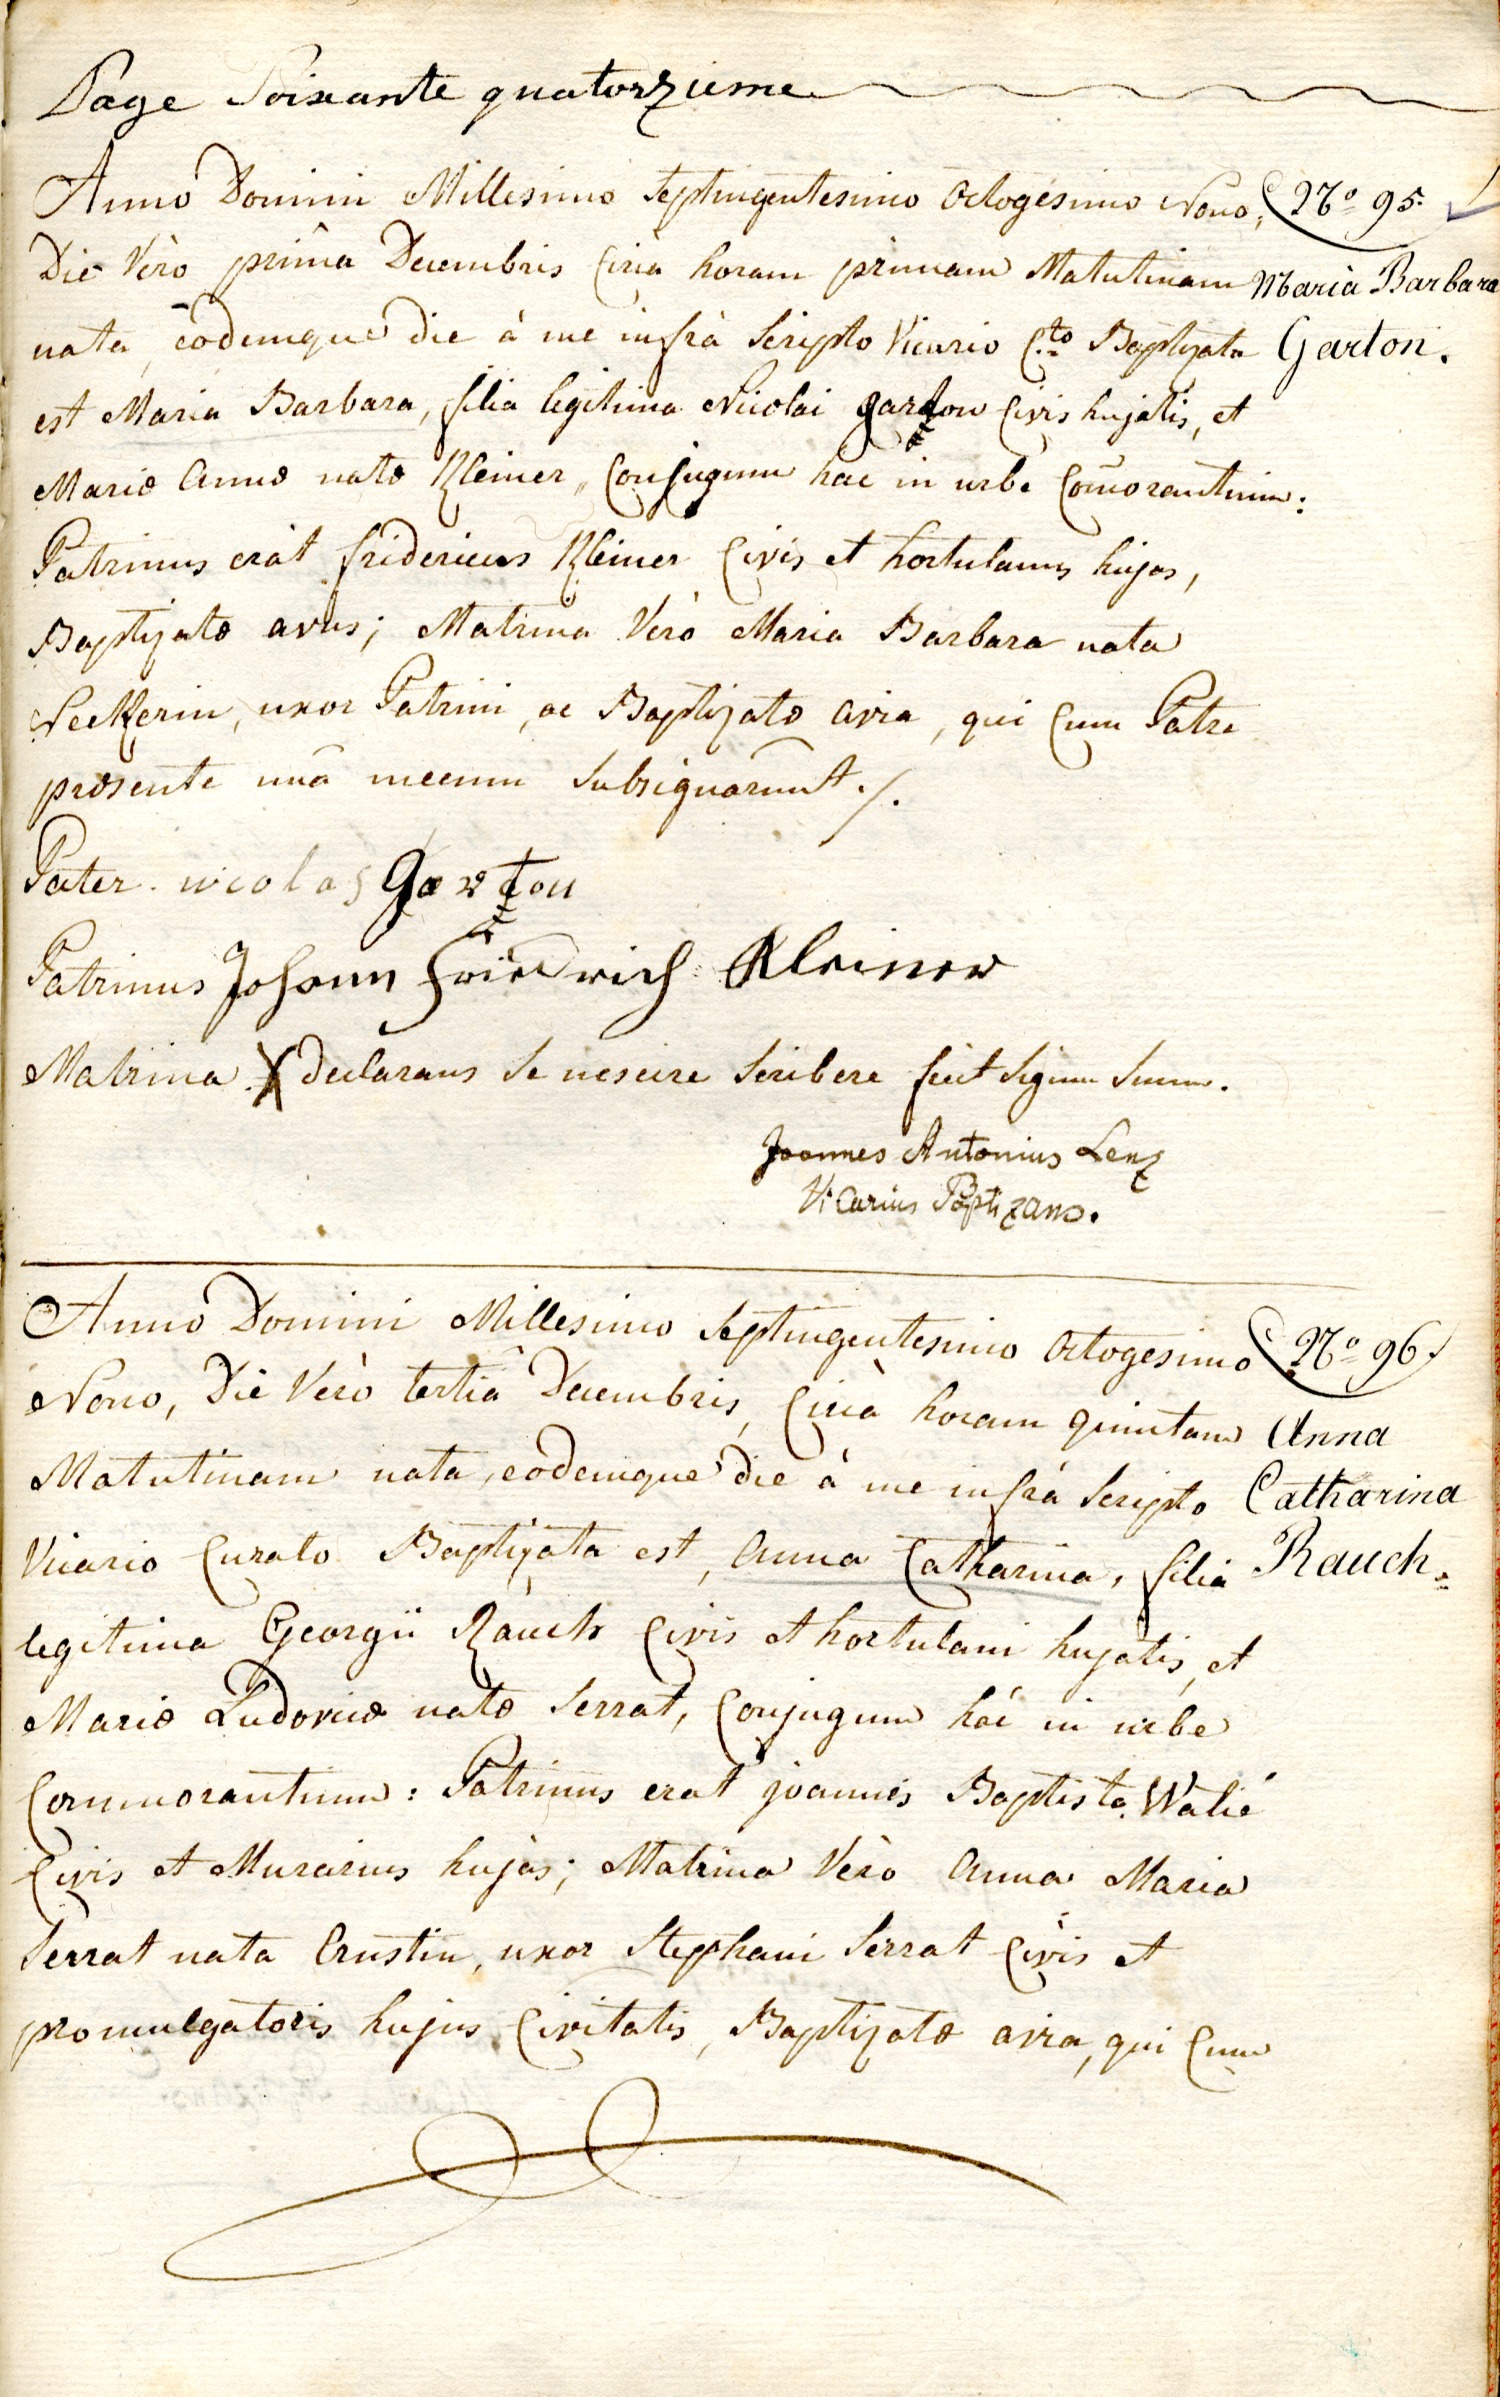 Page Soixante quatorzieme
Anno Domini Millesimo Septingentesimo Octogesimo Nono,
No 95.
Die Verò primâ Decembris Circà horam primam Matutinam
Maria Barbara
nata, eodemque die à me infrà Scripto Vicario C.to Baptizata
Garton.
est Maria Barbara, filia legitima Nicolai garton Civis hujatis, et
Mariæ Annæ natæ Kleiner, Conjugum hac in urbe Com̄orantium:
Patrinus erat fridericus Kleiner Civis et hortulanus hujas,
Baptizatæ avus; Matrina Verò Maria Barbara nata
Neckerin, uxor Patrini, ac Baptizatæ avia, qui Cum Patre
præsente unâ mecum Subsignarunt ./.
Pater. nicolas Garton
Patrinus Johann Friedrich Kleiner
Matrina X Declarans Se nescire Scribere fecit Signum Suum.
Joannes Antonius Lenz
Vicarius Baptizans.
Anno Domini Millesimo Septingentesimo Octogesimo
No 96.
Nono, Die Verò tertiâ Decembris, Circà horam quintam
Anna
Matutinam nata, eodemque die à me infrà Scripto
Catharina
Vicario Curato Baptizata est, Anna Catharina, filia
Rauch.
legitima Georgii Rauch Civis et hortulani hujatis, et
Mariæ Ludovicæ natæ Serrat, Conjugum hâc in urbe
Commorantium: Patrinus erat joannes Baptista Walié
Civis et Murarius hujàs; Matrina Verò Anna Maria
Serrat nata Crustin, uxor Stephani Serrat Civis et
promulgatoris hujus Civitatis, Baptizatæ avia, qui Cum